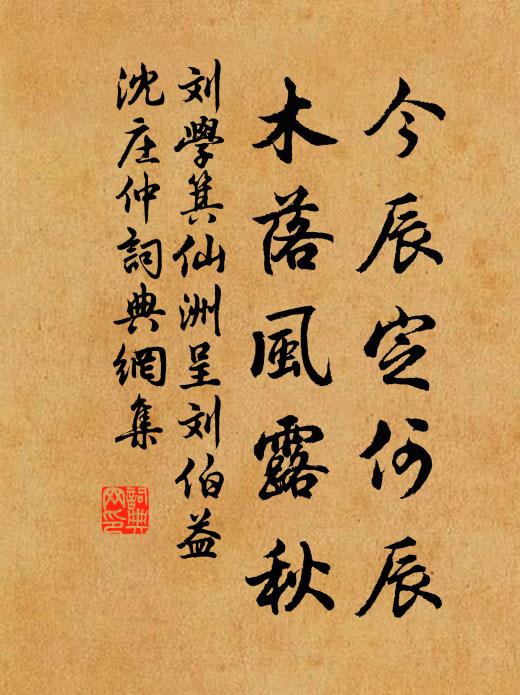 今辰定何辰
木落風露秋
刘學箕仙洲呈刘伯益
沈庄仲詞典網集
詞典網印